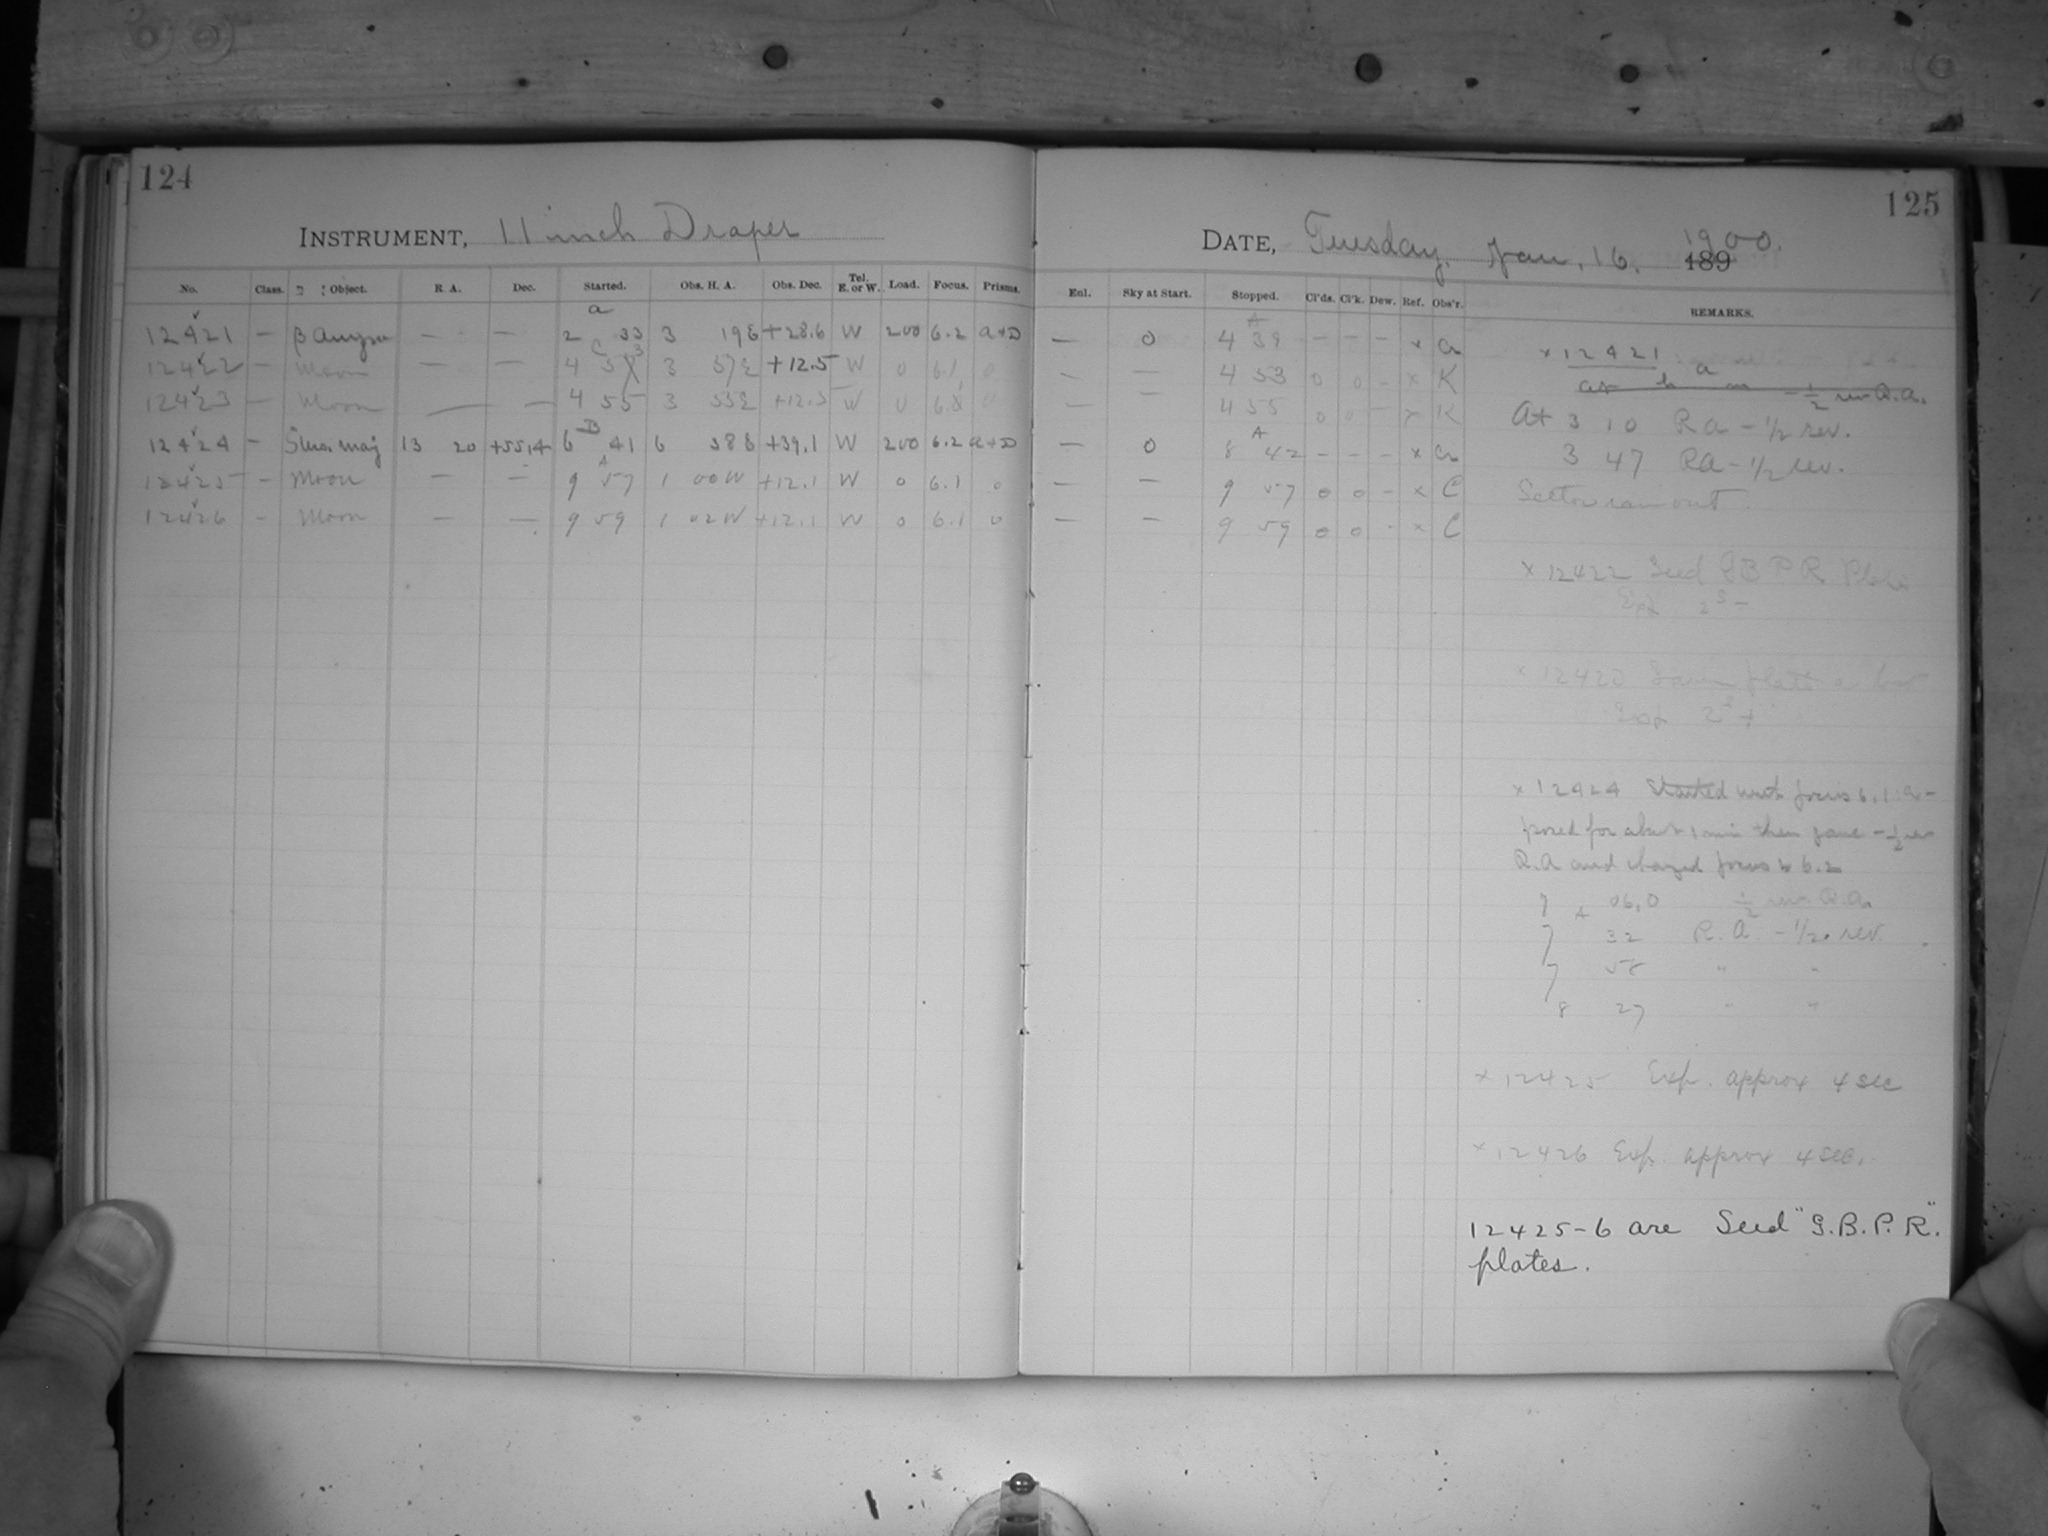 124
125
INSTRUMENT, 11 inch Draper
DATE, Tuesday, Jan, 16. 1900. 189
No. Class. Object. R. A. Dec. Started. Obs. H. A. Obs. Dec. Tel. E. or W. Load. Focus. Prisms.
Enl. Sky at Start. Stopped. Cl'ds. Cl'k. Dew. Ref. Obs'r. REMARKS.
12421 — β — — 2 33 3 19 E +28.6 W 200 6.2 — 0 4 39 - - - x
12422 — Moon — — 4 3 +12.5 W 0 6.1 0 — — 4 53 0 0 - x K
12423 — Moon — — 4 55 3 W 0 0 — — 4 55 0 0 - x K
12424 — 13 20 +55,4 6 41 6 38 E +39.1 W 200 6.2 a+D — 0 8 42 - - - x
12425 — Moon — — 9 57 1 00 W +12.1 W 0 6.1 0 — — 9 57 0 0 - x C
12426 - Moon — — 9 59 1 02 W +12.1 W 0 6.1 0 — — 9 59 0 0 - x C
x 12421
at h m - 1/2 rev R.A.
At 3 10 R a - 1/2 rev.
3 47 R a - 1/2 rev.
ran out
x 12422 Seed G B P R Plate
Exp 2s -
Exp 2s +
x 12424 Started with focus 6.1
posed for about 1 min then gave - 1/2 rev
R.A and changed focus to 6.2
7 06,0 1/2 rev. R.A.
7 32 R. A - 1/2 rev.
7 58 " "
8 27 " "
x 12425 Exp. approx 4 sec
x 12426 Exp. approx 4 sec.
12425-6 are Seed "G.B.P.R".
plates.